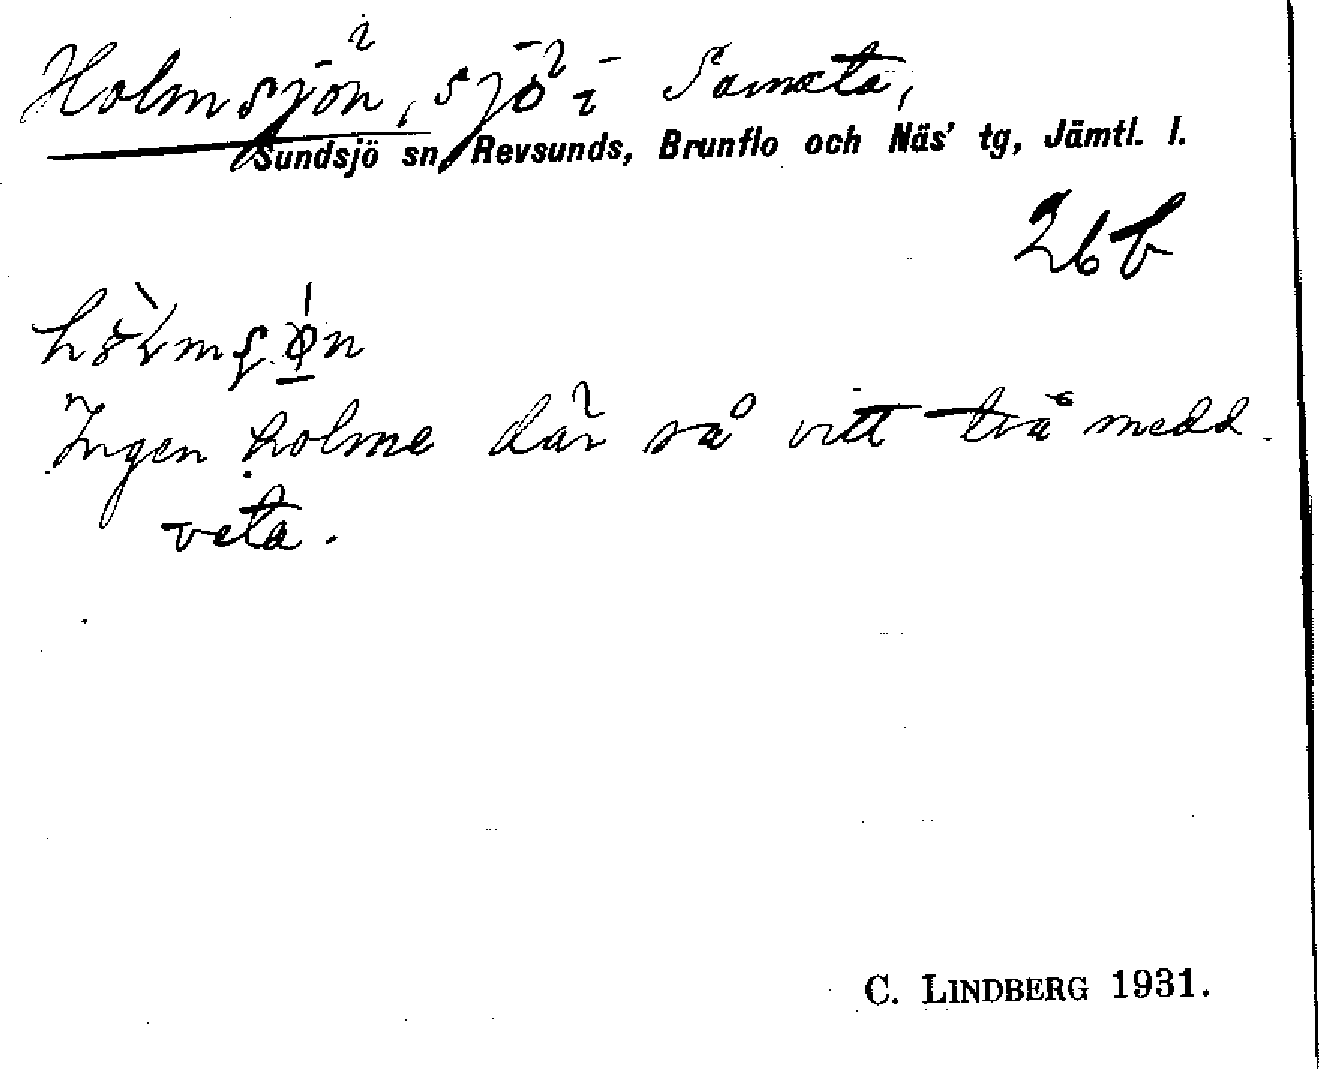 Holmsjön, sjö i Samäta,
Sundsjö sn, Revsunds, Brunflo och Näs' tg, Jämtl. l.
26b
Ingen holme där så vitt två medd.
veta.
C. LINDBERG 1931.